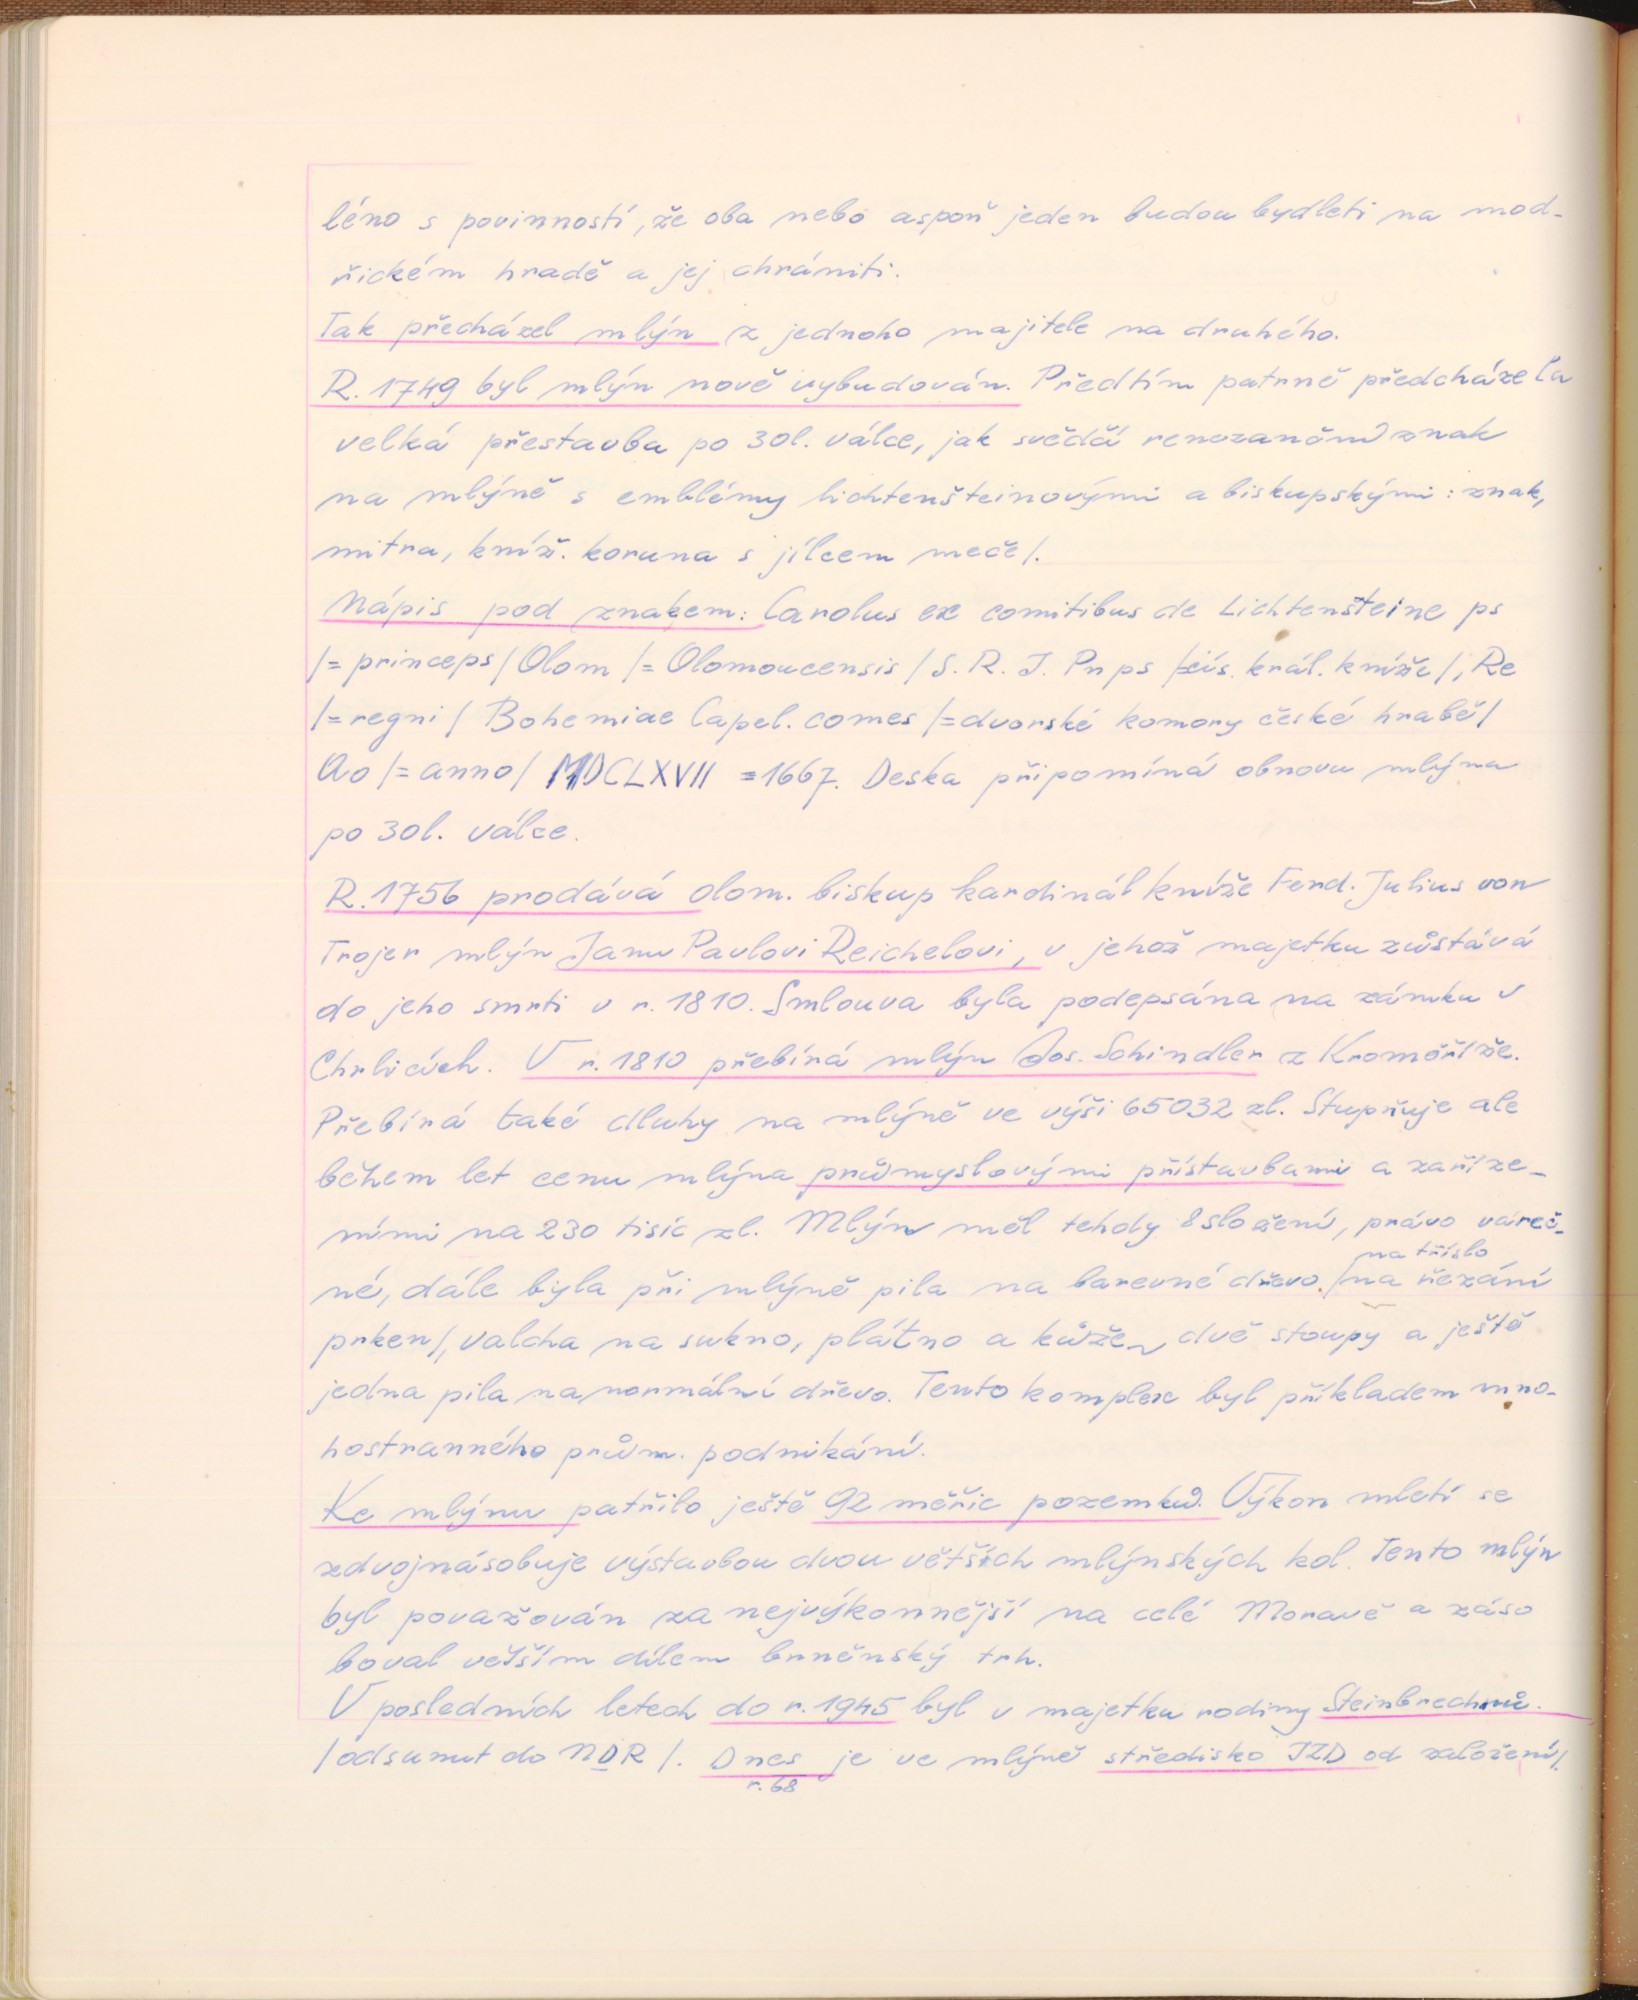 léno s povinností, že oba nebo aspoň jeden budou bydleti na mod-
řickém hradě a jej chrániti.
Tak přecházel mlýn z jednoho majitele na druhého.
R. 1749 byl mlýn nově vybudován. Předtím patrně předcházela
velká přestavba po 30l. válce, jak svědčí renezanční znak
na mlýně s emblémy lichtenšteinovými a biskupskými: znak,
mitra, kníž. koruna s jílcem meče/.
Nápis pod znakem: Carolus ex comitibus de Lichtenšteine ps
/= princeps/ Olom /= Olomoucensis / S. R. J. Pnps /=cís. král. kníže/, Re
/= regni / Bohemiae Capel. comes /=dvorské komory české hrabě/
Ao /= anno/ MDCLXVII = 1667. Deska připomíná obnovu mlýna
po 30l. válce.
R. 1756 prodává olom. biskup kardinál kníže Ferd. Julius von
Trojer mlýn Janu Pavlovi Reichelovi, v jehož majetku zůstává
do jeho smrti v r. 1810. Smlouva byla podepsána na zámku v
Chrlicích. V r. 1810 přebírá mlýn Jos. Schindler z Kroměříže.
Přebírá také dluhy na mlýně ve výši 65032 zl. Stupňuje ale
během let cenu mlýna průmyslovými přístavbami a zaříze-
ními na 230 tisíc zl. Mlýn měl tehdy 8 složení, právo váreč-
na tříslo
né, dále byla při mlýně pila na barevné dřevo. /na řezání
prken/, valcha na sukno, plátno a kůže, dvě stoupy a ještě
jedna pila na normální dřevo. Tento komplex byl příkladem mno-
hostranného prům. podnikání.
Ke mlýnu patřilo ještě 92 měřic pozemků. Výkon mletí se
zdvojnásobuje výstavbou dvou větších mlýnských kol. Tento mlýn
byl považován za nejvýkonnější na celé Moravě a záso
boval větším dílem brněnský trh.
V posledních letech do r. 1945 byl v majetku rodiny Steinbrechrů.
/odsunut do NDR/. Dnes je ve mlýně středisko JZD od založení/.
r. 68